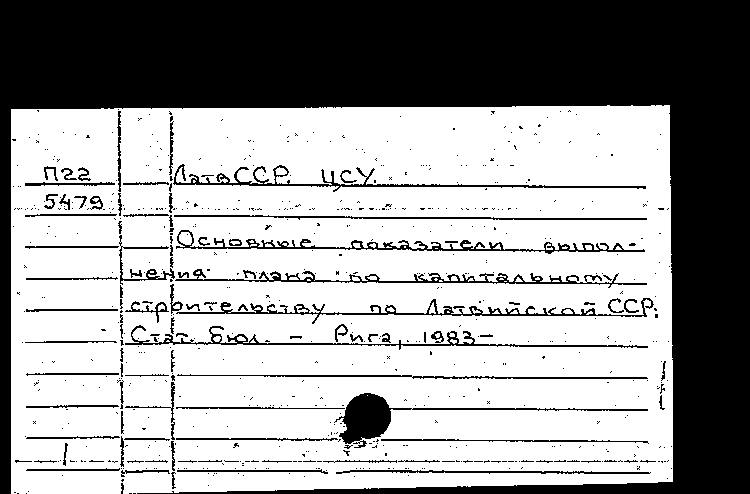 П22 ЛатвССР. ЦСУ.
5479
Основные показатели выпол-
нения плана по капитальному
строительству по Латвийской ССР:
Стат. бюл. - Рига, 1983-